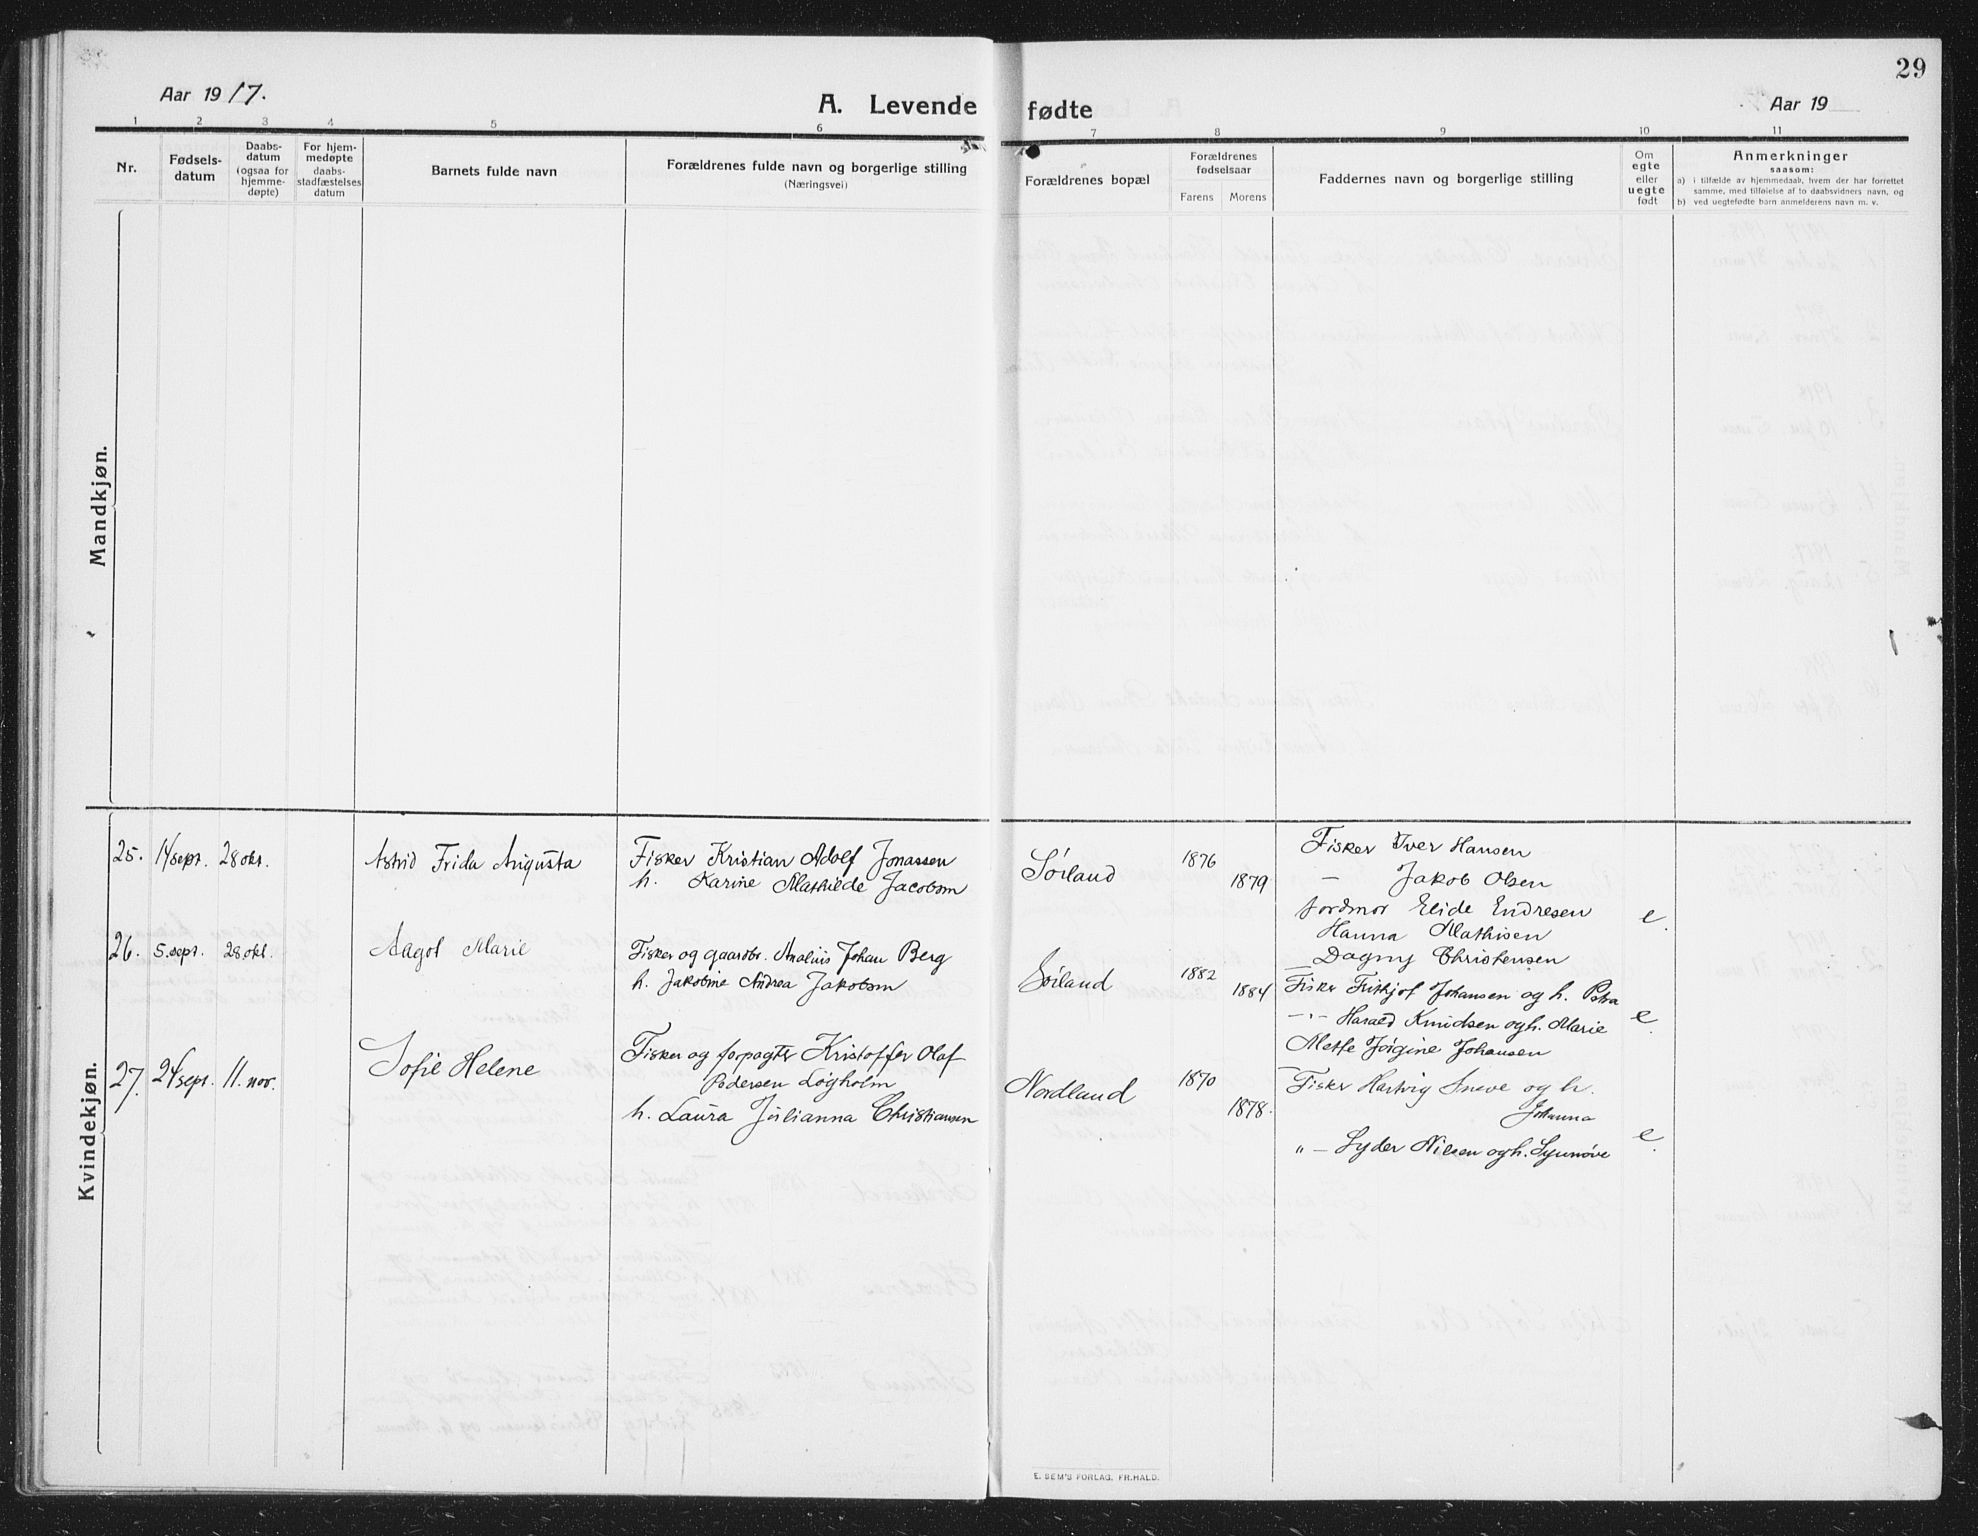 29
Aar 1917.
A. Levende
fødte
Aar 19
1 2 3 4 5 6 7 8 9 10 11
Nr.
Fødselsdatum
Daabsdatum (ogsaa for hjemmedøpte)
For hjemmedøpte daabsstadfæstelses datum
Barnets fulde navn
Forældrenes fulde navn og borgerlige stilling
(Næringsvei)
Forældrenes bopæl
Forældrenes fødselsaar
Farens
Morens
Faddernes navn og borgerlige stilling
Om egte eller uegte født
Anmerkninger
saasom:
a) i tilfælde av hjemmedaab, hvem der har forrettet
samme, med tilføielse af to daabsvidners navn, og
b) ved uegtefødte barn anmelderens navn m. v.
Mandkjøn.
Kvindekjøn.
25. 14 sept. 28 okt. Astrid Frida Augusta
Fisker Kristian Adolf Jonassen
h. Karine Mathilde Jacobsen
Sørland
1876
1879
Fisker Iver Hansen
— Jakob Olsen
Jordmor Elide Endresen
Hanna Mathisen
Dagny Christensen
e.
26. 5. sept. 28 okt. Aagot Marie
Fisker og gaardbr. Johan Berg
h. Jakobine Andrea Jakobsen
Sørland
1882
1884
Fisker Fritjof Johansen og h. Petra
— Harald Knudsen og h. Marie
Mette Jørgine Johansen
e.
27. 24 sept. 11. nov. Sofie Helene
Fisker og forpagter Kristoffer Olaf
Pedersen Løgholm
h. Laura Julianna Christiansen
Nordland
1870
1878.
Fisker Hartvig Sneve og h.
Johanna
" — Lyder Nilsen og h. Synnøve
e.
E. SEM'S FORLAG, FR.HALD.